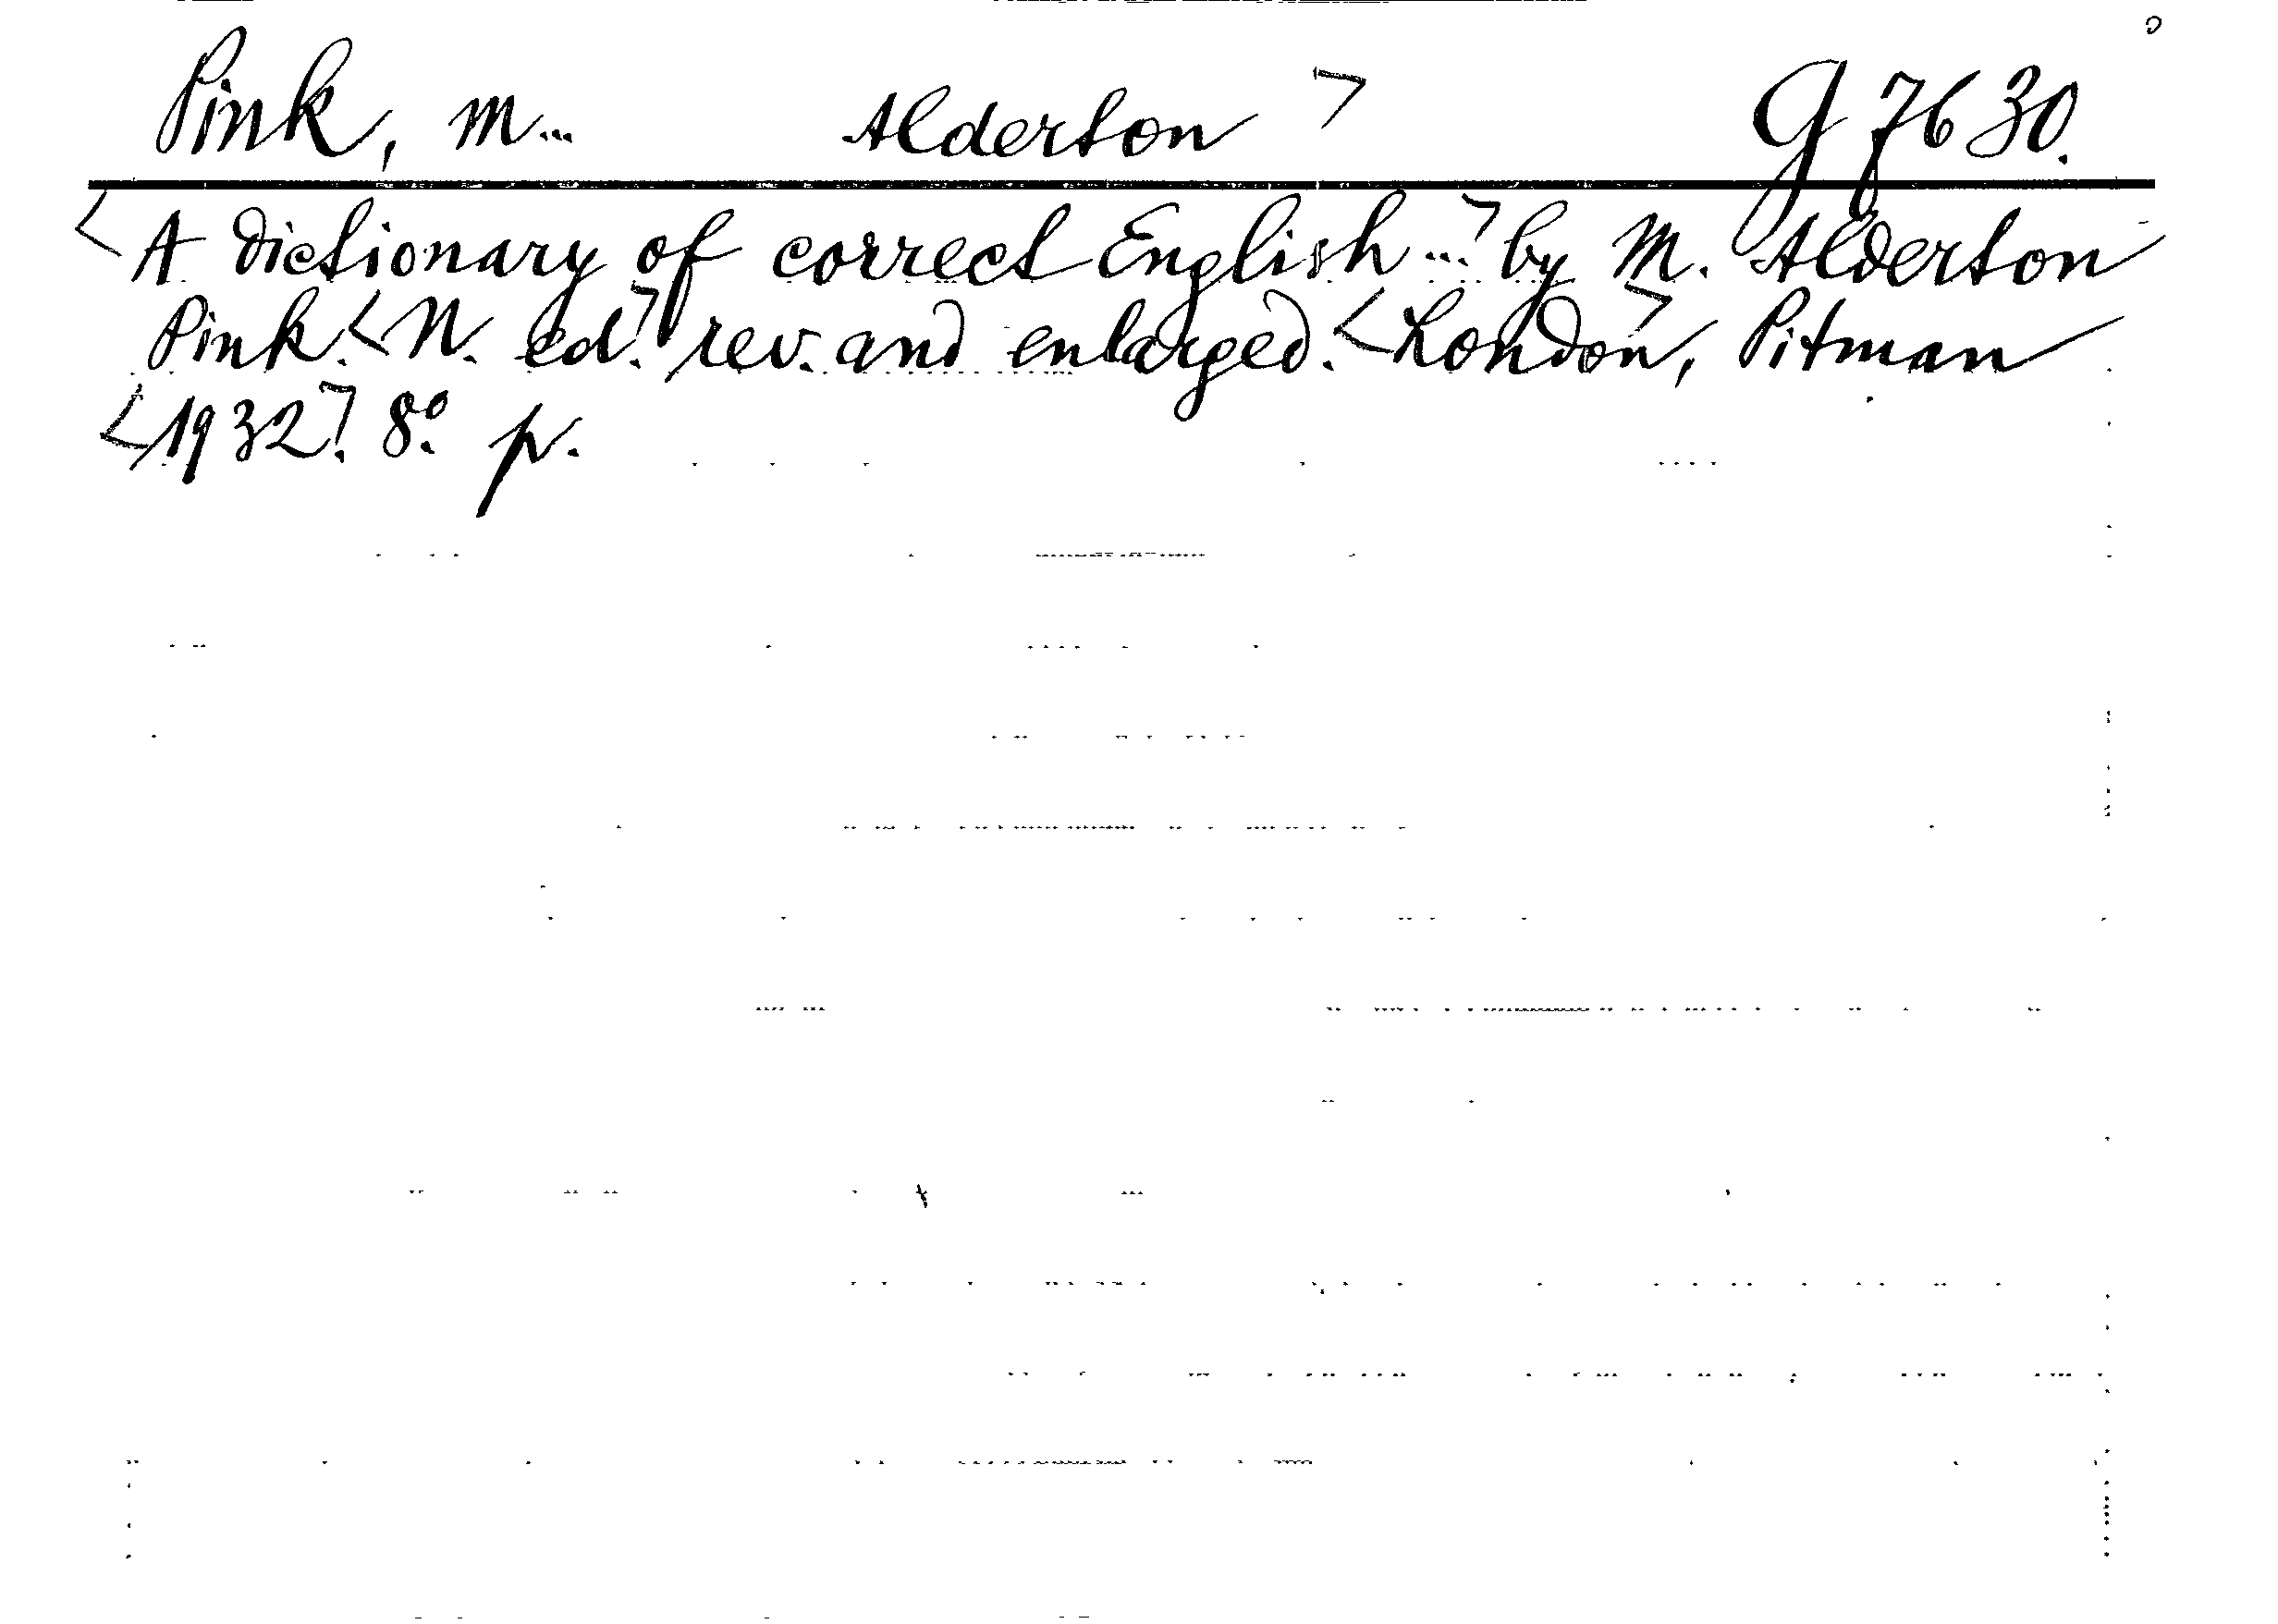 Pink, M... Alderton > G 7630.
<A dictionary of correct English...> by M. Alderton
Pink. <N. ed.> rev. and enlarged. <London>, Pitman
<1932>. 8°. p.